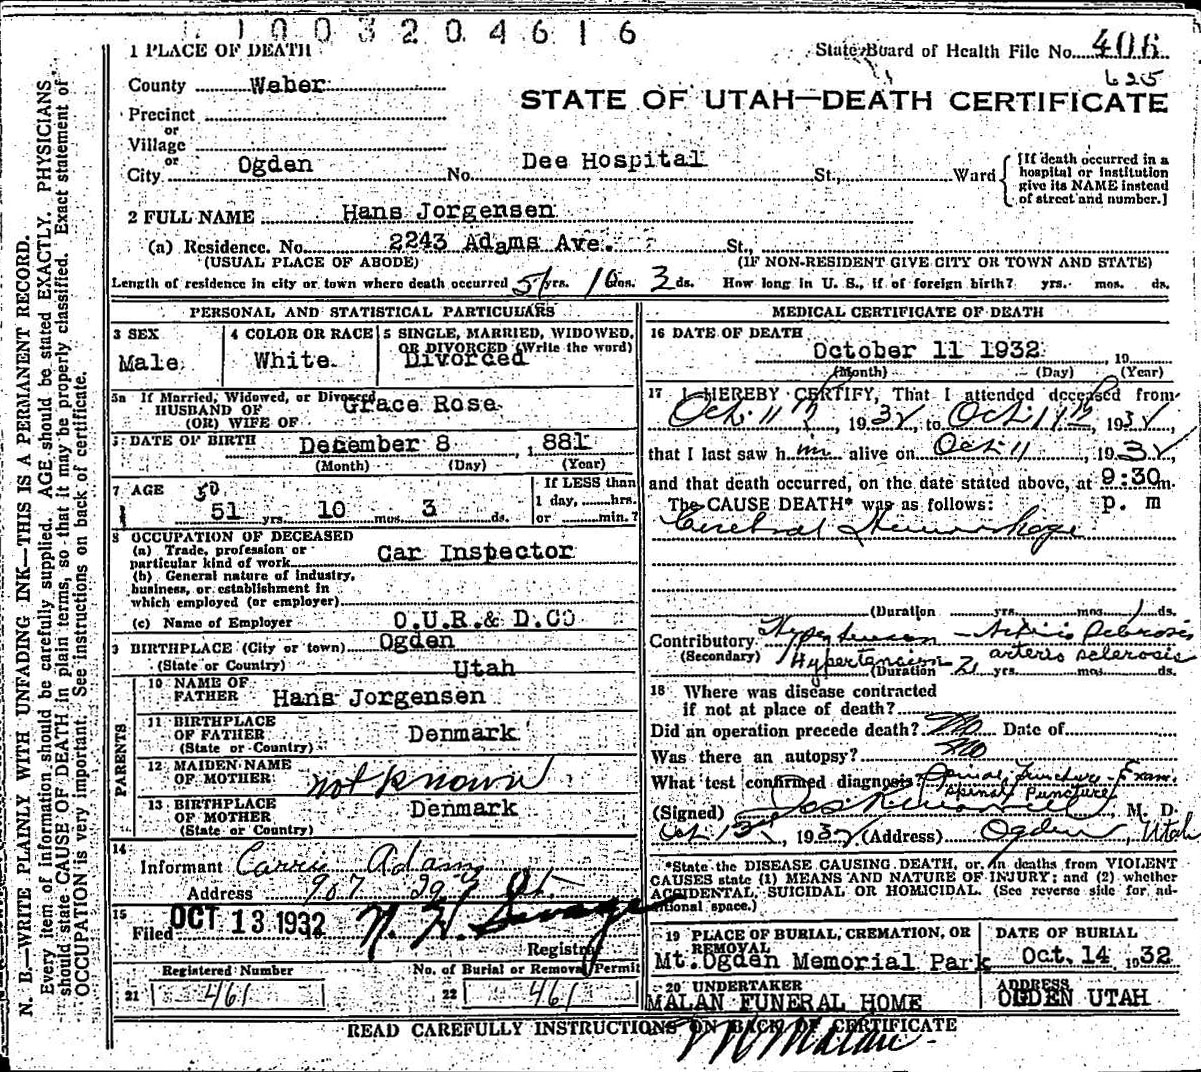 1 1 0 0 3 2 0 4 6 1 6
1 PLACE OF DEATH
State Board of Health File No. 406
625
County Weber
STATE OF UTAH—DEATH CERTIFICATE
Precinct
or
Village
or
City Ogden No. Dee Hospital St., Ward
[If death occurred in a
hospital or institution
give its NAME instead
of street and number.]
2 FULL NAME Hans Jorgensen
(a) Residence. No. 2243 Adams Ave. St.,
(USUAL PLACE OF ABODE) (IF NON-RESIDENT GIVE CITY OR TOWN AND STATE)
Length of residence in city or town where death occurred 51 yrs. 10 mos. 3 ds. How long in U. S., if of foreign birth? yrs. mos. ds.
PERSONAL AND STATISTICAL PARTICULARS
3 SEX
Male
4 COLOR OR RACE
White
5 SINGLE, MARRIED, WIDOWED,
OR DIVORCED (Write the word)
Divorced
5a If Married, Widowed, or Divorced
HUSBAND OF
(OR) WIFE OF
Grace Rose
6 DATE OF BIRTH December 8, 1881
(Month) (Day) (Year)
7 AGE
50
51 yrs. 10 mos. 3 ds.
If LESS than
1 day, hrs.
or min.?
8 OCCUPATION OF DECEASED
(a) Trade, profession or
particular kind of work Car Inspector
(b) General nature of industry,
business, or establishment in
which employed (or employer)
(c) Name of Employer O.U.R.& D.CO
9 BIRTHPLACE (City or town) Ogden
(State or Country) Utah
PARENTS
10 NAME OF
FATHER Hans Jorgensen
11 BIRTHPLACE
OF FATHER Denmark
(State or Country)
12 MAIDEN NAME
OF MOTHER not known
13 BIRTHPLACE
OF MOTHER Denmark
(State or Country)
14
Informant Carrie Adams
Address 907 29 St.
15
Filed OCT 13 1932
Registrar
Registered Number
21 461
No. of Burial or Removal Permit
22 461
MEDICAL CERTIFICATE OF DEATH
16 DATE OF DEATH
October 11 1932, 19
(Month) (Day) (Year)
17 I HEREBY CERTIFY, That I attended deceased from
Oct. 11th, 1932, to Oct. 11th, 1932,
that I last saw him alive on Oct 11, 1932,
and that death occurred, on the date stated above, at 9:30 m.
The CAUSE DEATH* was as follows: p. m
Cerebral Hemorrhage
(Duration yrs. mos. 1 ds.
Contributory Hypertension - Arterio Sclerosis
(Secondary) Hypertension arterio sclerosis
(Duration 2 yrs. mos. ds.
18 Where was disease contracted
if not at place of death?
Did an operation precede death? No Date of
Was there an autopsy? No
What test confirmed diagnosis? Spinal Puncture - Exam.
Spinal Puncture
(Signed) M. D.
Oct 13, 1932 (Address) Ogden, Utah
*State the DISEASE CAUSING DEATH, or, in deaths from VIOLENT
CAUSES state (1) MEANS AND NATURE OF INJURY; and (2) whether
ACCIDENTAL, SUICIDAL OR HOMICIDAL. (See reverse side for ad-
ditional space.)
19 PLACE OF BURIAL, CREMATION, OR
REMOVAL
Mt. Ogden Memorial Park
DATE OF BURIAL
Oct. 14, 1932
20 UNDERTAKER
MALAN FUNERAL HOME
ADDRESS
OGDEN UTAH
READ CAREFULLY INSTRUCTIONS ON BACK OF CERTIFICATE
Malan
N. B.—WRITE PLAINLY WITH UNFADING INK—THIS IS A PERMANENT RECORD.
Every item of information should be carefully supplied. AGE should be stated EXACTLY. PHYSICIANS
should state CAUSE OF DEATH in plain terms, so that it may be properly classified. Exact statement of
OCCUPATION is very important. See instructions on back of certificate.